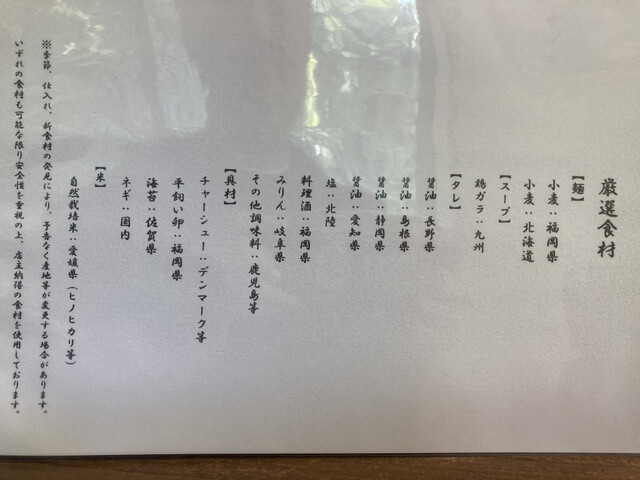 厳選食材
【麺】
小麦：福岡県
小麦：北海道
【スープ】
鶏ガラ：九州
【タレ】
醤油：長野県
醤油：島根県
醤油：静岡県
醤油：愛知県
塩：北陸
料理酒：福岡県
みりん：岐阜県
その他調味料：鹿児島等
【具材】
チャーシュー：デンマーク等
平飼い卵：福岡県
海苔：佐賀県
ネギ：国内
【米】
自然栽培米：愛媛県（ヒノヒカリ等）
※季節、仕入れ、新食材の発見により、予告なく産地等が変更する場合があります。
いずれの食材も可能な限り安全性を重視の上、店主納得の食材を使用しております。